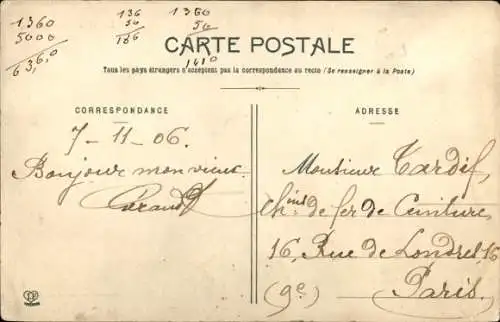 1360
5000
63,60
136
50
186
1360
50
1410
CARTE POSTALE
Tous les pays étrangers n'acceptent pas la correspondance au recto (Se renseigner à la Poste)
CORRESPONDANCE
ADRESSE
7-11-06.
Bonjour mon vieux.
Monsieur Tardif,
Chins de fer de Ceinture,
16, Rue de Londres 16
Paris.
(9e)